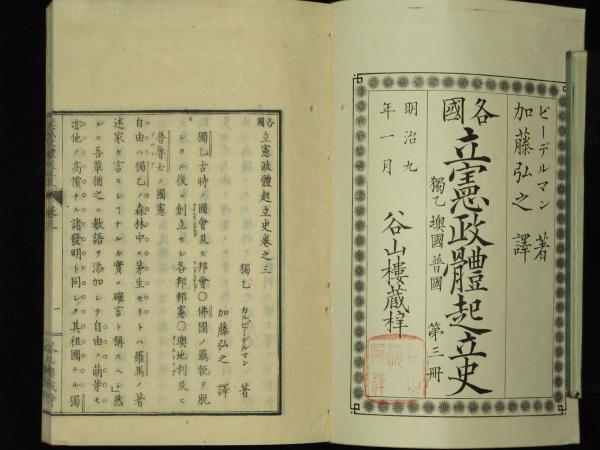 ビーデルマン 著
加藤弘之 譯
各國 立憲政體起立史
獨乙 墺國 普國 第三冊
明治九年一月
谷山樓蔵梓
各國 立憲政體起立史卷之三
獨乙 カルビーデルマン 著
加藤弘之 譯
獨乙古時ノ國會及ヒ邦會〇佛國ノ羈軛ヲ脫
シタル後ニ創立セシ各邦邦憲〇墺地利及ヒ
普魯士ノ國憲
自由ハ獨乙ノ森林中ニ芽生セリトハ羅馬ノ著
述家カ言ヒシヿナルカ實ニ確言ト稱スヘシ然
ルニ吾輩猶之ニ數語ヲ添加シテ自由ノ萌芽モ
亦他ノ高價ナル諸發明ト同シク其祖國ナル獨